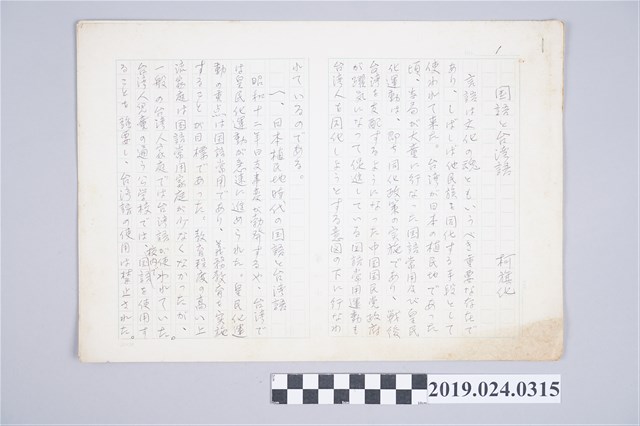 1
国語と台湾語
柯旗化
言語は文化の魂ともいうべき重要な存在で
あり、しばしば他民族を同化する手段として
使われて来た。台湾が日本の植民地であった
頃、当局が大量に行なった国語常用及び皇民
化運動は、即ち同化政策の実施であり、戦後
台湾を支配するようになった中国国民党政府
が躍気になって促進している国語常用運動も
台湾人を同化しようとする意図の下に行なわ
れているのである。
一、日本植民地時代の国語と台湾語
昭和十二年日支事変が勃発するや、台湾で
は皇民化運動が急速に進められた。皇民化運
動の重点は国語常用であり、義務教育を実施
することが目標であった。教育程度の高い上
流家庭は国語常用家庭が少なくなかったが、
一般の台湾人家庭では台湾語が使われていた。
台湾人児童の通う公学校では校内で国語を使用す
ることを強要し、台湾語の使用は禁止された。
2019.024.0315